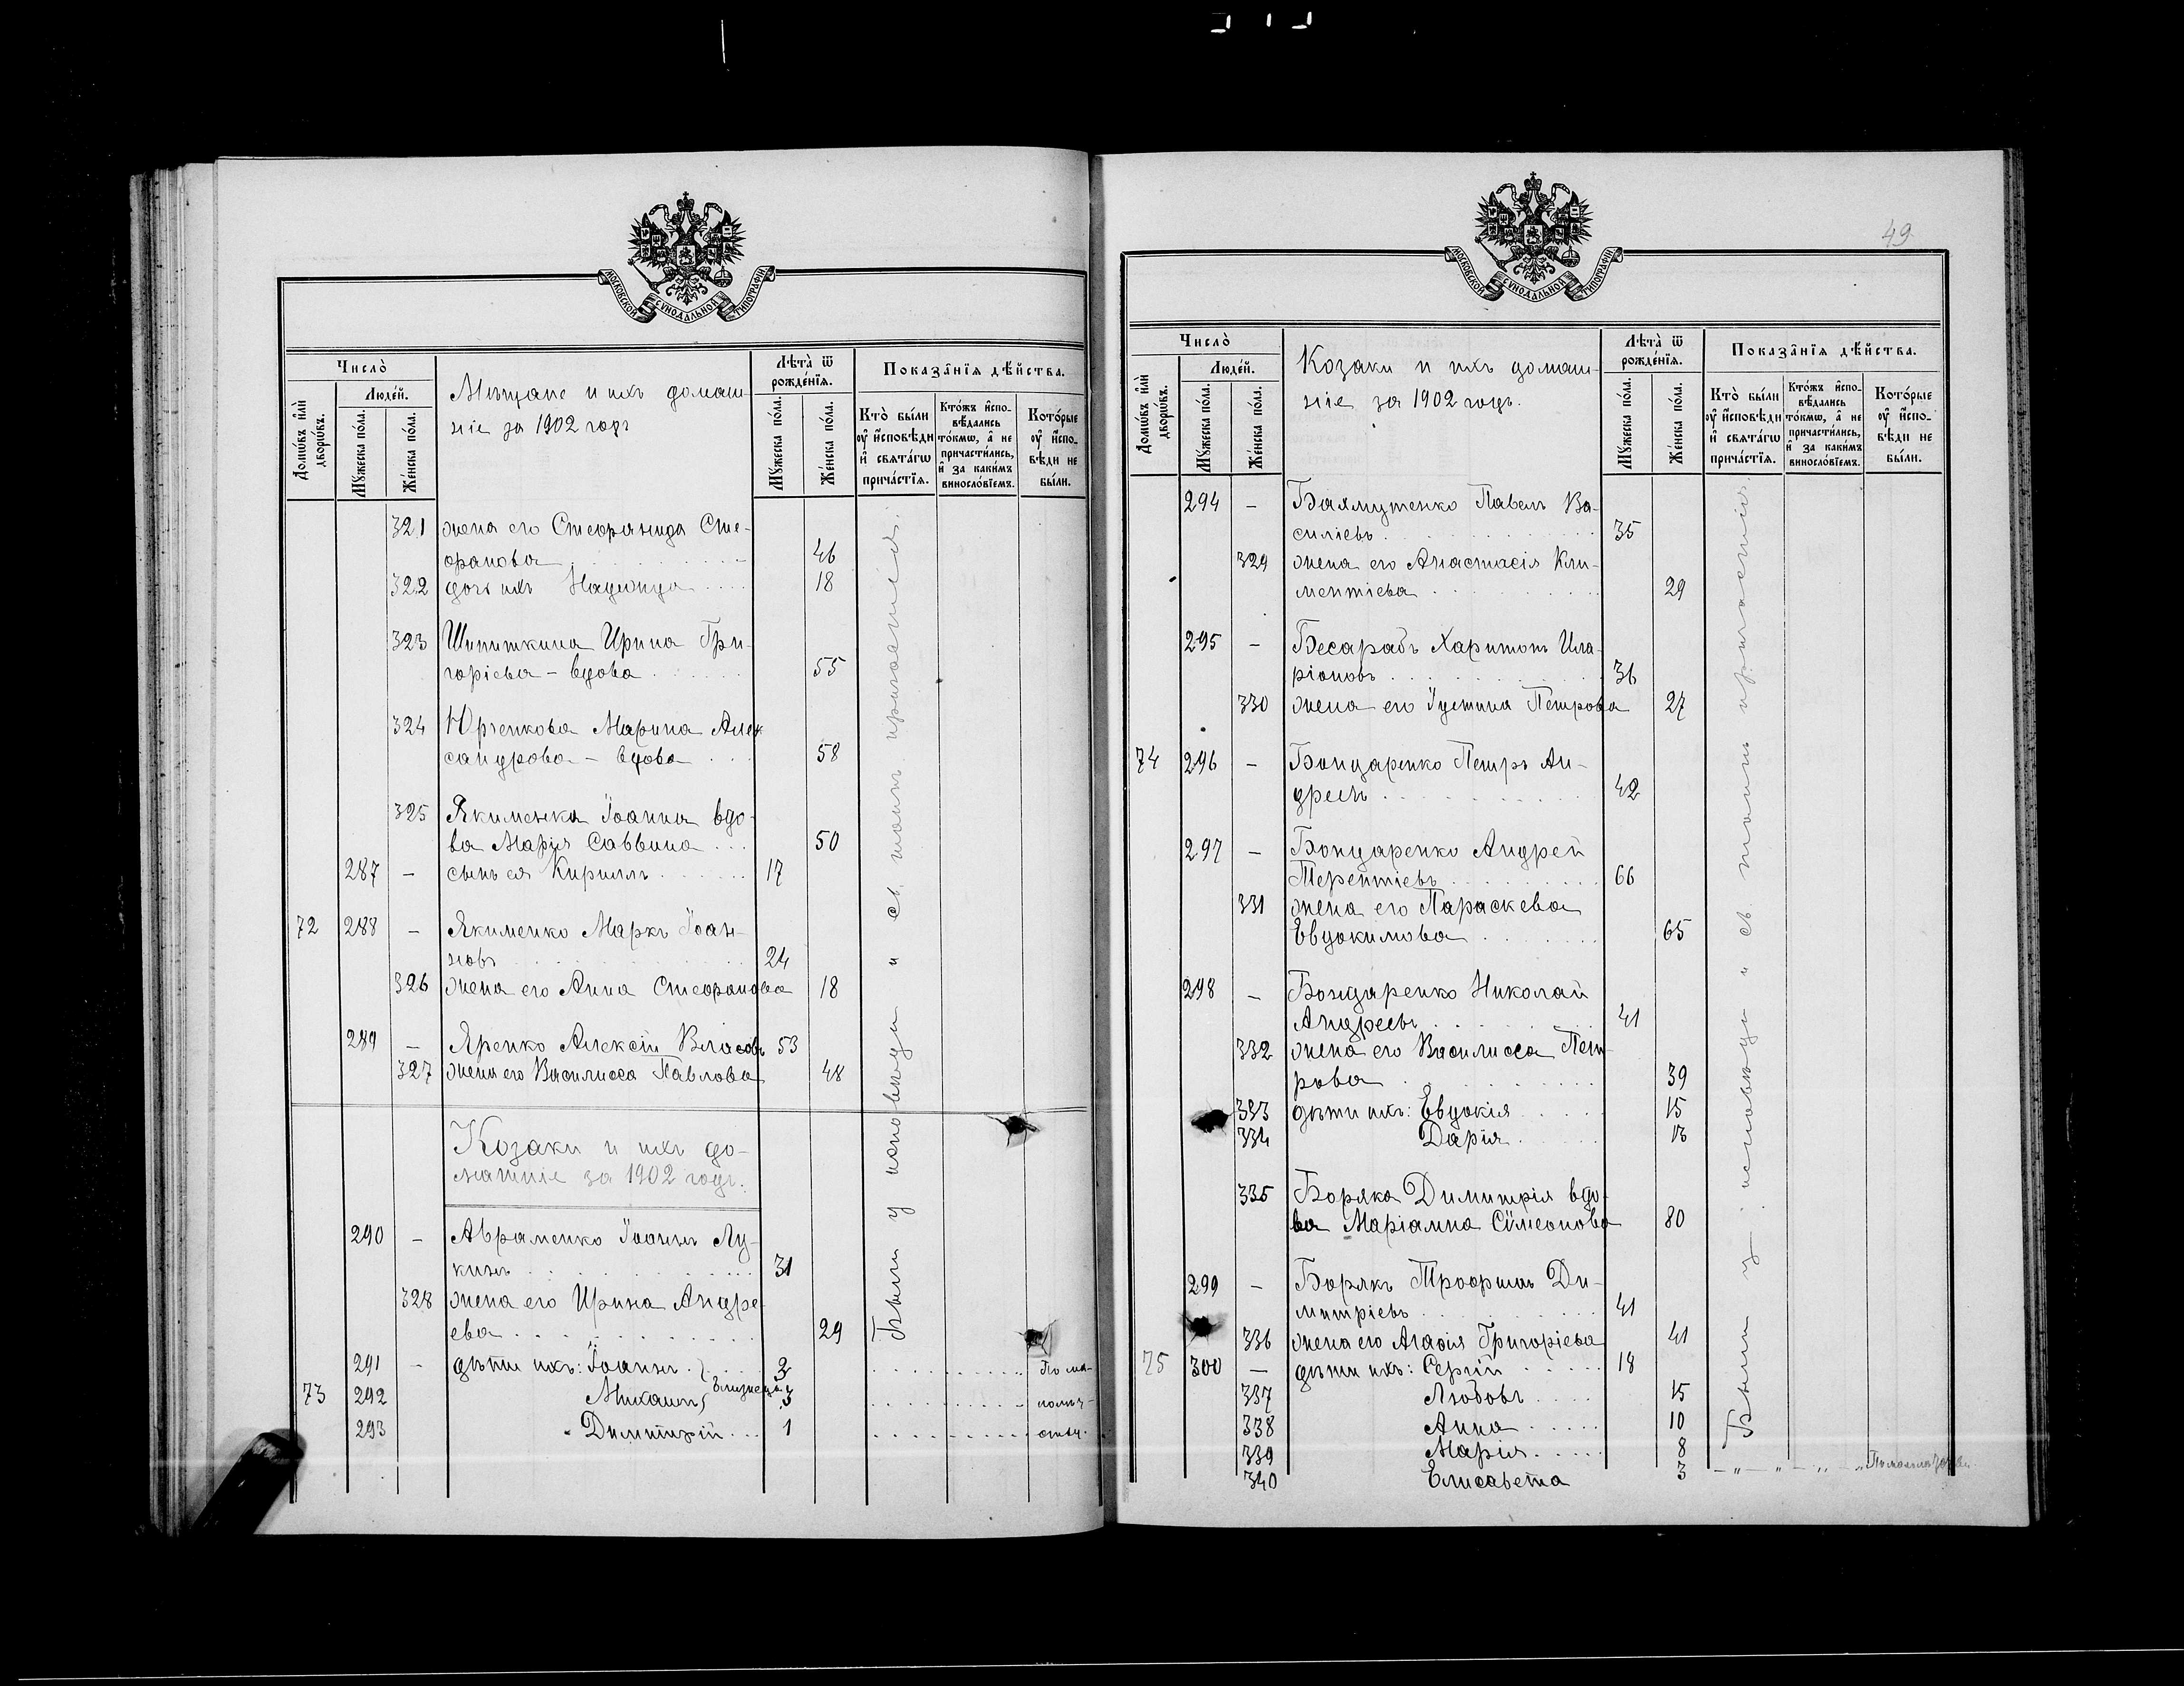 МОСКОВСКОЙ СѴНОДАЛЬНОЙ ТИПОГРАФІИ
Число̀
Домѡ́въ и҆лѝ дворѡ́въ.
Люде́й.
Мꙋ́жеска по́ла.
Же́нска по́ла.
Мѣщане и ихъ домаш-
ніе за 1902 годъ
Лѣта̀ ѿ рожде́нїѧ.
Мꙋ́жеска по́ла.
Же́нска по́ла.
Показа̑нїѧ дѣ́йства.
Кто̀ бы́ли ᲂу҆ и҆сповѣ́ди и҆ свѧта́гѡ прича́стїѧ.
Кто́жъ и҆спо-вѣ́дались то́кмѡ, а҆ не причасти́лись, и҆ за каки́мъ винosло́вїемъ.
Кото́рые ᲂу҆ и҆спо-вѣ́ди не бы́ли.
321 жена его Стефанида Сте-
фанова 46
322 дочь ихъ Надежда 18
323 Шипиткина Ирина Гри-
горіева - вдова 55
324 Юрченкова Марина Алек
сандрова - вдова 58
325 Якименка Іоанна вдо-
ва Марія Саввина 50
287 - сынъ ея Кириллъ 17
72 288 - Якименко Маркъ Іоан-
новъ 24
326 жена его Анна Стефанова 18
289 - Яренко Алексій Власовъ 53
327 жена его Василисса Павлова 48
Козаки и ихъ до-
машніе за 1902 годъ.
290 - Авраменко Іоаннъ Лу-
кинъ 31
328 жена его Ирина Андре-
ева 29
291 - дѣти ихъ: Іоаннъ 3 По ма-
73 292 Михаилъ близнецы 3 лолѣт-
293 Димитрій 1 ству.
Были у исповѣди и св. таинъ причастія.
49
МОСКОВСКОЙ СѴНОДАЛЬНОЙ ТИПОГРАФІИ
Число̀
Домѡ́въ и҆лѝ дворѡ́въ.
Люде́й.
Мꙋ́жеска по́ла.
Же́нска по́ла.
Козаки и ихъ домаш-
ніе за 1902 годъ.
Лѣта̀ ѿ рожде́нїѧ.
Мꙋ́жеска по́ла.
Же́нска по́ла.
Показа̑нїѧ дѣ́йства.
Кто̀ бы́ли ᲂу҆ и҆сповѣ́ди и҆ свѧта́гѡ прича́стїѧ.
Кто́жъ и҆спо-вѣ́дались то́кмѡ, а҆ не причасти́лись, и҆ за каки́мъ винosло́вїемъ.
Кото́рые ᲂу҆ и҆спо-вѣ́ди не бы́ли.
294 - Бахмутенко Павелъ Ва-
силіевъ 35
329 жена его Анастасія Кли-
ментіева 29
295 - Бесарабъ Харитонъ Ила-
ріоновъ 36
330 жена его Іустина Петрова 27
74 296 - Бондаренко Петръ Ан-
дреевъ 42
297 - Бондаренко Андрей
Терентіевъ 66
331 жена его Параскева
Евдокимова 65
298 - Бондаренко Николай
Андреевъ 41
332 жена его Василисса Пет-
рова 39
333 дѣти ихъ: Евдокія 15
334 Дарія 13
335 Боряка Димитрія вдо-
ва Маріамна Сѵмеонова 80
299 - Борякъ Трофимъ Ди-
митріевъ 41
336 жена его Агафія Григоріева 41
75 300 - дѣти ихъ: Сергій 18
337 Любовь 15
338 Анна 10
339 Марія 8
340 Елисавета 3
Были у исповѣди и св. таинъ причастія